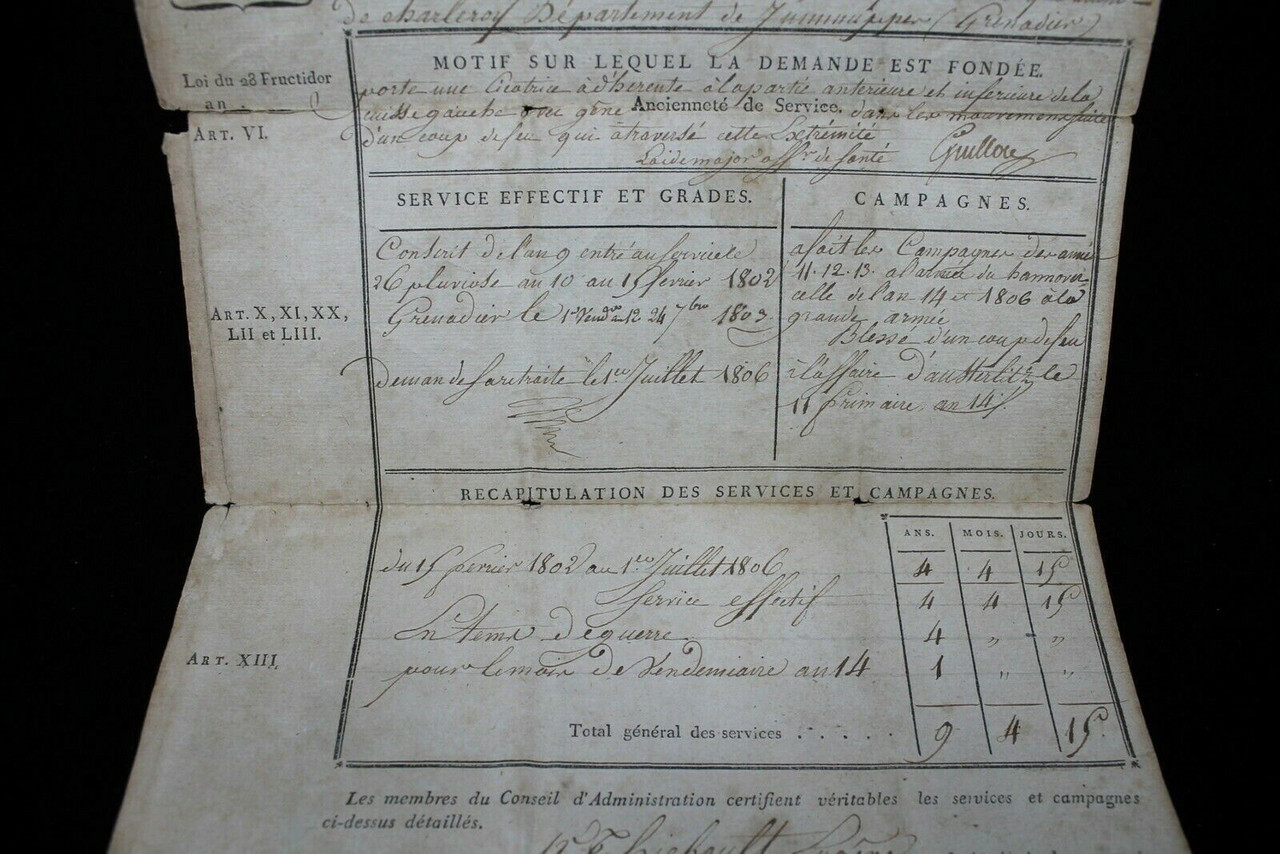 de charleroy Département de Jemmappes (Grenadier)
MOTIF SUR LEQUEL LA DEMANDE EST FONDÉE.
Loi du 28 Fructidor
an
porte une Cicatrice adherente à la partie anterieure et inferieure de la
cuisse gauche avec gêne Ancienneté de Service. dans les mouvemens suite
ART. VI.
d'un coup de feu qui a traversé cette Extrémité
L'aide major off.er de santé Guillou
SERVICE EFFECTIF ET GRADES.
CAMPAGNES.
Conscrit de l'an 9 entré au service le
26 pluviose an 10 au 15 février 1802
Grenadier le 1er Vendre an 12 24 7bre 1803
demande sa retraite le 1er Juillet 1806
a fait les Campagnes des années
11. 12. 13. a l'armée du hannovre
celle de l'an 14 et 1806 à la
grande armée
Blessé d'un coup de feu
à l'affaire d'austerlitz le
11 frimaire, an 14.
ART. X, XI, XX,
LII et LIII.
RECAPITULATION DES SERVICES ET CAMPAGNES.
ANS. MOIS. JOURS.
du 15 fevrier 1802 au 1er Juillet 1806 4 4 15
Service effectif 4 4 15
En tems de guerre 4 " "
ART. XIII.
pour le mois de Vendemiaire an 14 1 " "
Total général des services . . . . . . 9 4 15.
Les membres du Conseil d'Administration certifient véritables les services et campagnes
ci-dessus détaillés.